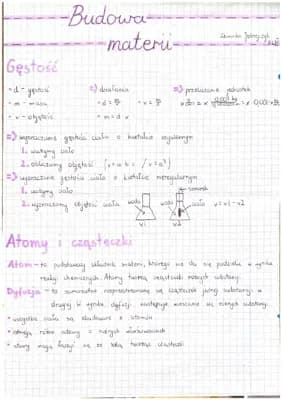 Budowa
materii
Gęstość
• d - gęstość
• m - masa
• v - objętość
=) działania
• d = m/v
• v = m/d
• m = d · v
=) przeliczanie jednostek
=) wyznaczanie gęstości ciała o kształcie regularnym
1. ważymy ciało
2. obliczamy objętość (v = a · b · c / v = a³)
=) wyznaczanie gęstości ciała o kształcie nieregularnym
1. ważymy ciało
2. wyznaczamy objętość ciała
woda
v1
woda
sznurek
ciało
v2
v = v1 - v2
Atomy i cząsteczki
Atom - to podstawowy składnik materii, którego nie da się podzielić w wyniku
reakcji chemicznych. Atomy tworzą cząsteczki różnych substancji.
Dyfuzja - to samorzutne rozprzestrzenianie się cząsteczek jednej substancji w
drugiej. W wyniku dyfuzji następuje mieszanie się różnych substancji.
• wszystkie ciała są zbudowane z atomów
• istnieją różne atomy o różnych
• atomy mogą łączyć się ze sobą tworząc cząsteczki